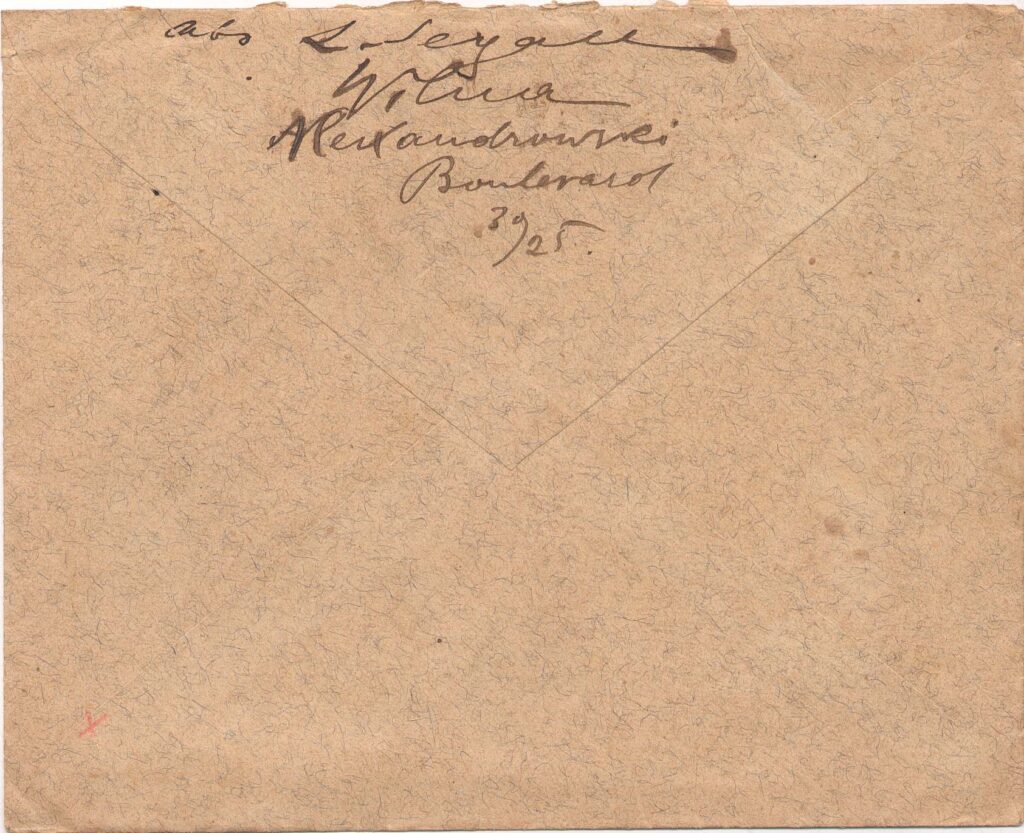 Abs L. Segall
Wilna
Alexandrowski
Boulevard
39/25.